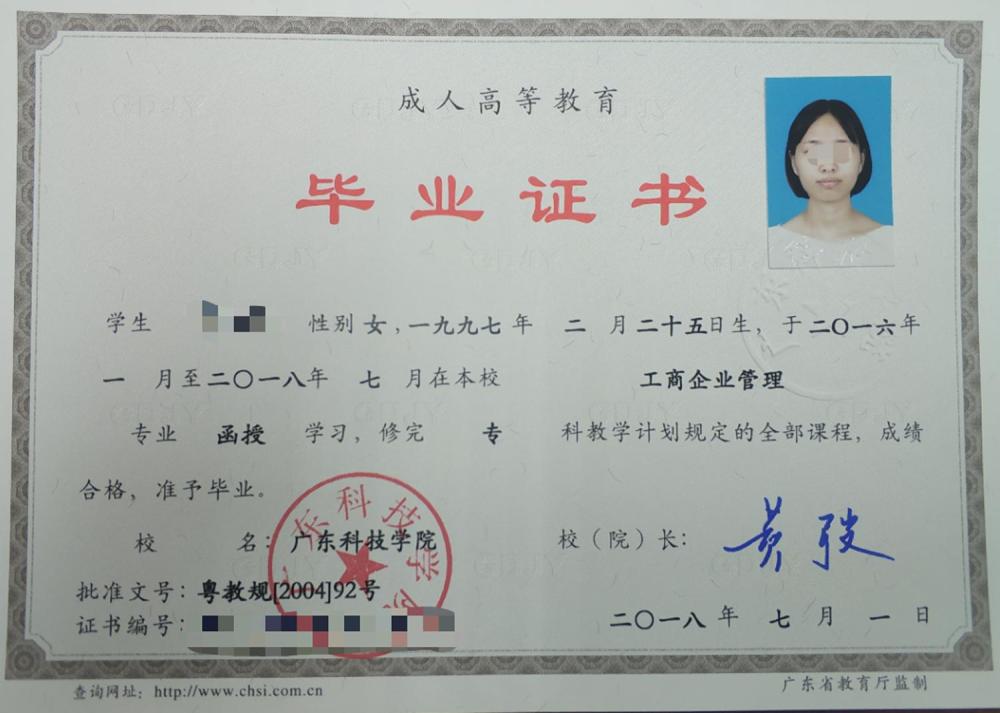 成人高等教育
毕业证书
学生 性别 女，一九九七 年 二 月 二十五日生，于 二〇一六年
一 月至二〇一八年 七 月在本校 工商企业管理
专业 函授 学习，修完 专 科教学计划规定的全部课程，成绩
合格，准予毕业。
校 名：广东科技学院 校（院）长：
批准文号：粤教规[2004]92号
证书编号：
二〇一八 年 七 月 一 日
查询网址：http://www.chsi.com.cn
广东省教育厅监制